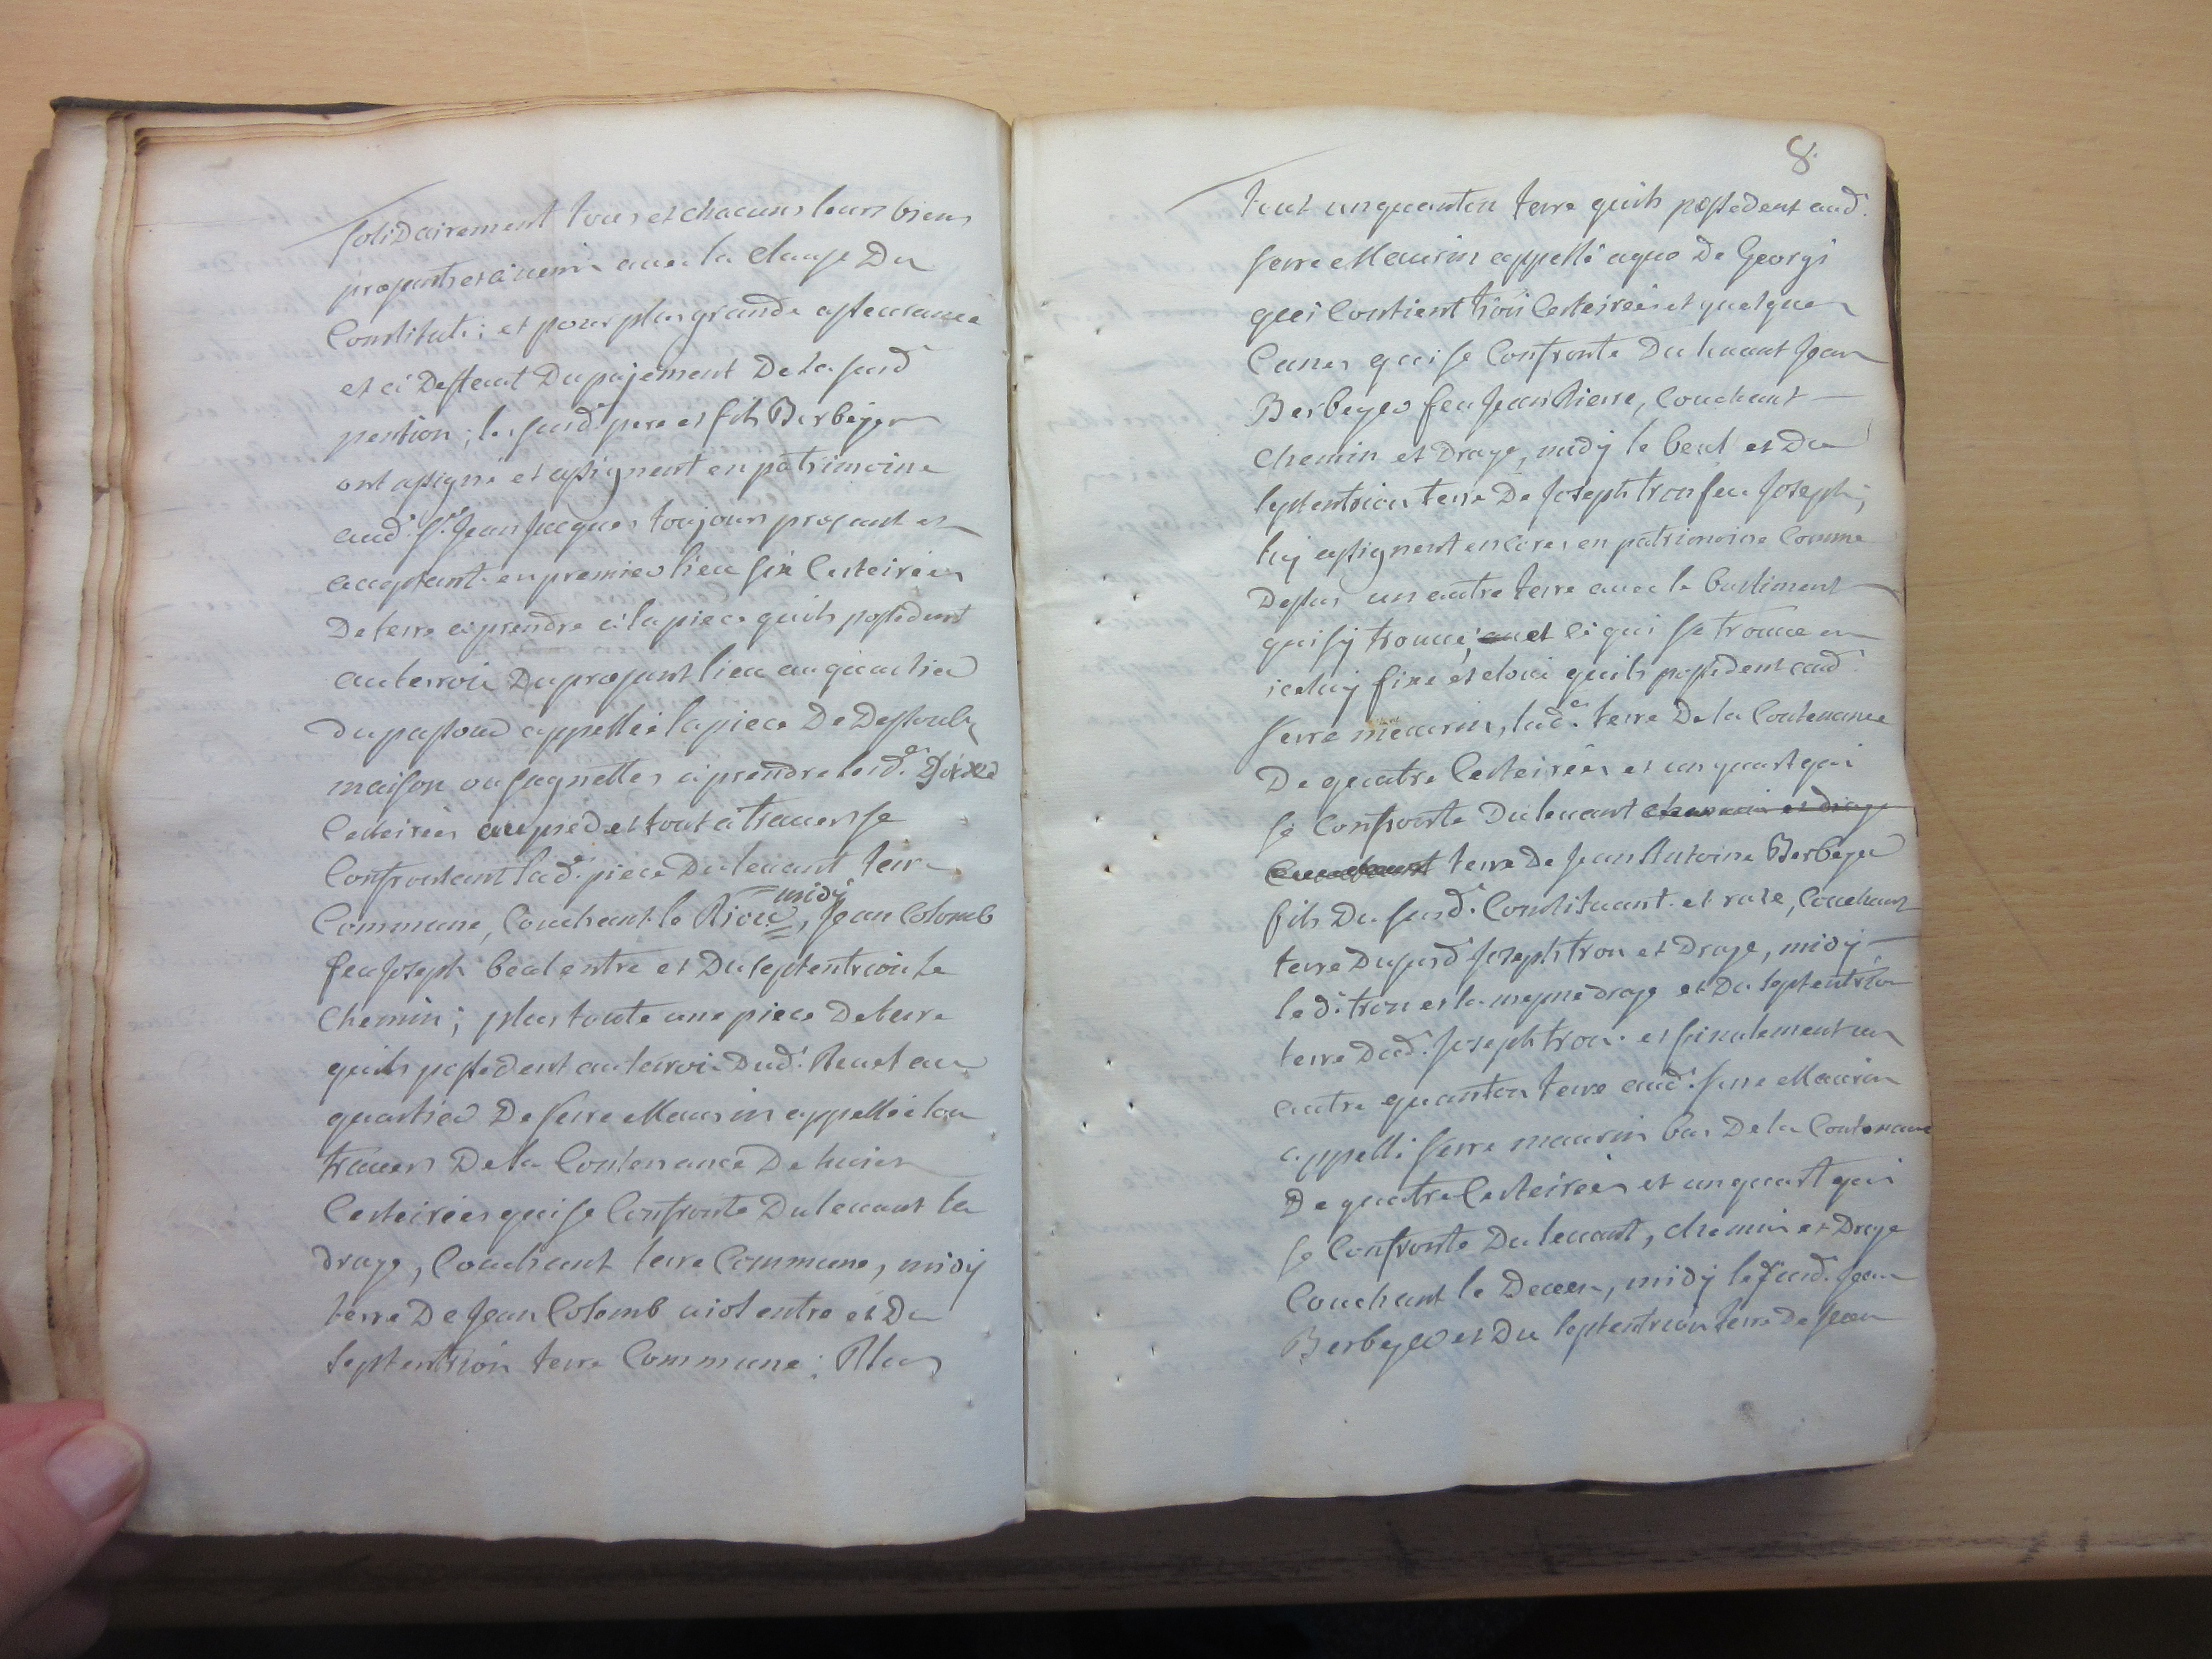 solidairement tous et chacuns leurs biens
presants et a venir avec la clause du
Constitut; et pour plus grande asseurance
et a deffaut du pajement de la susd
pention; les susd.s pere et fils Berbeyer
ont assigné et assignent en patrimoine
aud. Sr. Jean Jacques toujours presant et
acceptant en premier lieu six Cesteirées
de terre a prendre a la piece quils possedent
au terroir du presant lieu au quartier
du passour appellée la piece de dessoubz
maison ou sagnettes a prendre lesd.es
Cesteirées au pied et tout a traverse
Confrontant lad.e piece du levant terre
Commune, Couchant le Riou, midy Jean Colomb
feu Joseph beal entre et du septentrion le
Chemin; plus toute une piece de terre
quils possedent au terroir dud. au
quartier de serre Maurin appellée lou
travers de la Contenance de huict
Cesteirées qui se Confronte du levant la
draye, Couchant terre Commune, midy
terre de Jean Colomb viol entre et du
septentrion terre Commune; Plus
8.
tout un quanton terre quils possedent aud.
serre Maurin appellé aquo de Georgi
qui Contient trois Cesteirées et quelques
Canes qui se Confronte du levant Jean
Berbeyer feu Jean Pierre, Couchant
chemin et draye, midy le beal et du
septentrion terre de Joseph tron feu Joseph;
luy assignent encores en patrimoine Comme
dessus un autre terre avec le bastiment
qui sy trouve; et ce qui se trouve en
iceluy fixe et cloué quils possedent aud.
serre meaurin, lad.e terre de la Contenance
de quatre Cesteirées et un quart qui
se Confronte du levant chemin et draye
Couchant terre de Jean Antoine Berbeyer
fils du susd. Constituant et rase, Couchant
terre dususd Joseph tron et draye, midy
led. tron et la mesme draye et du septentrion
terre dud. Joseph tron. et finalement un
autre quanton terre aud. serre Maurin
appellé serre maurin bas de la Contenance
de quatre Cesteirées et un quart qui
se Confronte du levant, chemin et draye
Couchant le deven, midy le susd. Jean
Berbeyer et du septentrion terre de Jean